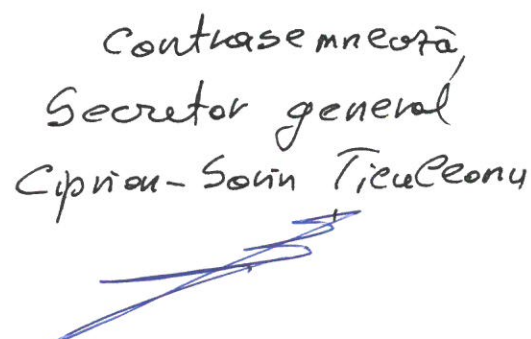 Contrasemnează,
Secretar general
Ciprian-Sorin Ticuleanu